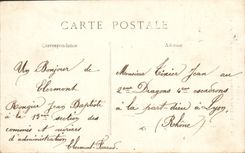 CARTE POSTALE
Correspondance
Adresse
Un Bonjour de
Clermont
Rougier Jean Baptiste
à la 13me section des
commis et ouvriers
d'administration
Clermont-Ferrand
Monsieur Tixier Jean au
2me Dragons 4me escadrons
à la part-dieu à Lyon,
(Rhône)